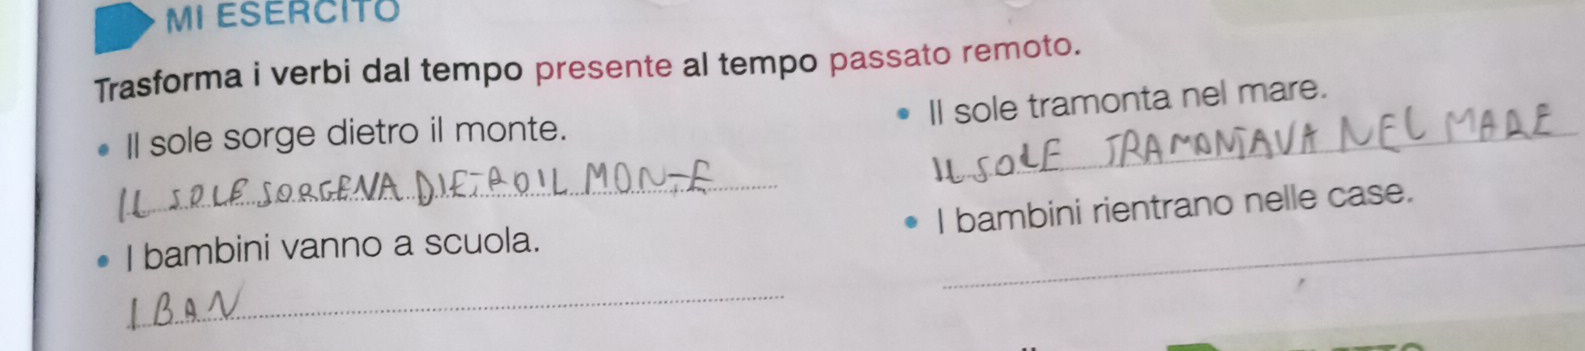 MI ESERCITO
Trasforma i verbi dal tempo presente al tempo passato remoto.
• Il sole sorge dietro il monte.
IL SOLE SORGEVA DIETRO IL MONTE
• I bambini vanno a scuola.
I BAN
• Il sole tramonta nel mare.
IL SOLE TRAMONTAVA NEL MARE
• I bambini rientrano nelle case.